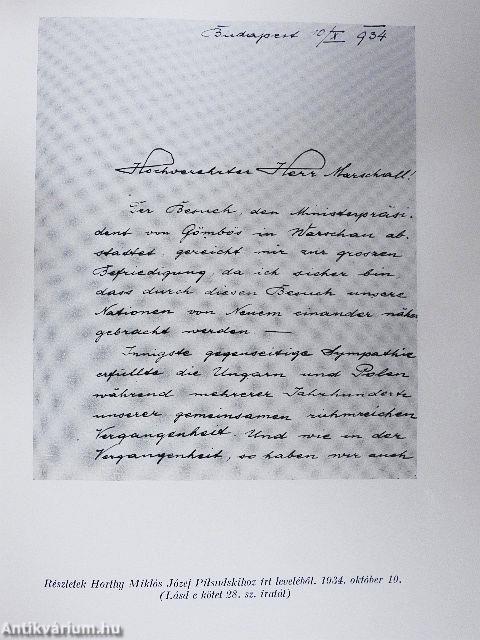 Budapest 10/X 934
Hochverehrter Herr Marschall!
Der Besuch, den Ministerpräsi-
dent von Gömbös in Warschau ab-
stattet, gereicht mir zur groszen
Befriedigung, da ich sicher bin
dass durch diesen Besuch unsere
Nationen von Neuem einander näher
gebracht werden —
Innigste gegenseitige Sympathie
erfüllte die Ungarn und Polen
während mehrerer Jahrhunderte
unserer gemeinsamen ruhmreichen
Vergangenheit. Und wie in der
Vergangenheit, so haben wir auch
Részletek Horthy Miklós Józej Piłsudskihoz írt leveléből. 1934. október 10.
(Lásd e kötet 28. sz. iratát)
Antikvárium.hu